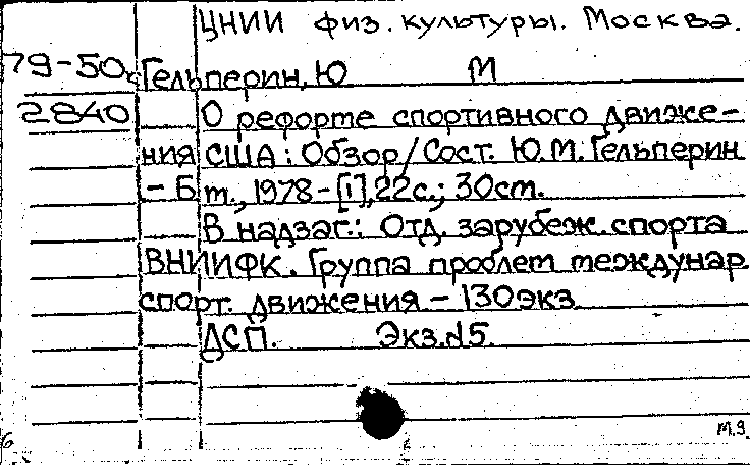 ЦНИИ физ. культуры. Москва.
79-50
Гельперин, Ю М
2840
О реформе спортивного движе-
ния США: Обзор/Сост. Ю.М. Гельперин
- Б.м., 1978 - [1], 22с.; 30см.
В надзаг.: Отд. зарубеж. спорта
ВНИИФК. Группа проблем междунар
спорт. движения - 130экз
ДСП. Экз.№5.